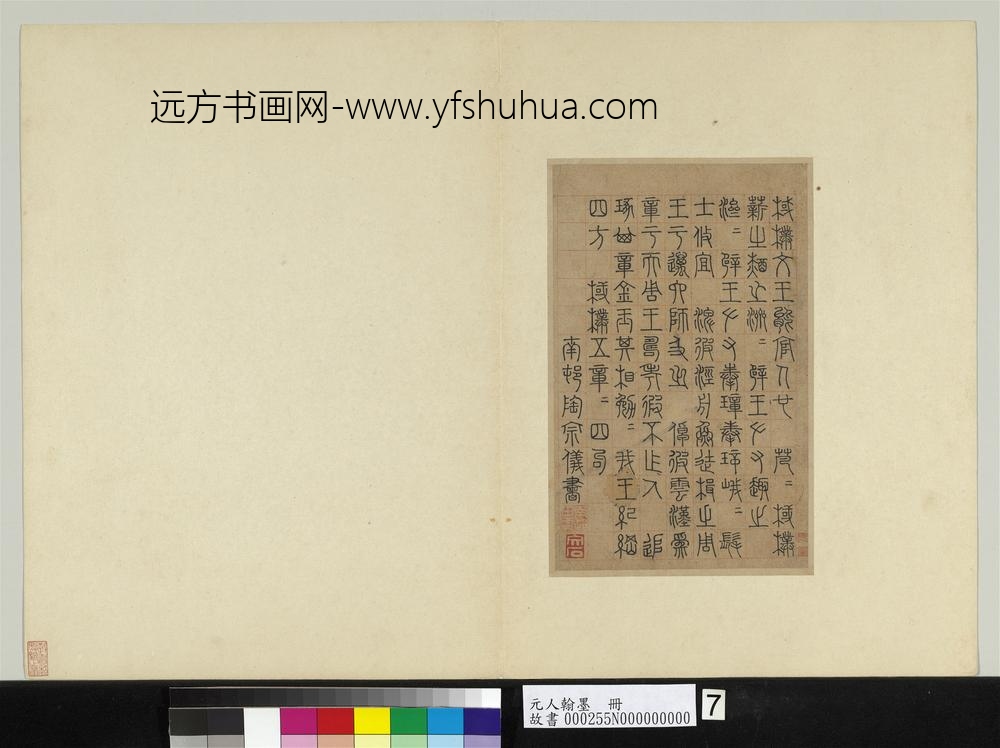 远方书画网-www.yfshuhua.com
棫樸文王能官人也 芃〻棫樸
薪之槱之濟〻辟王左右趣之
濟〻辟王左右奉璋奉璋峨〻髦
士攸宜 淠彼涇舟烝徒楫之周
王于邁六師及之 倬彼雲漢爲
章于天周王壽考遐不作人 追
琢其章金玉其相勉〻我王紀綱
四方 棫樸五章〻四句
南邨陶宗儀書
元人翰墨 冊
故書 000255N000000000
7